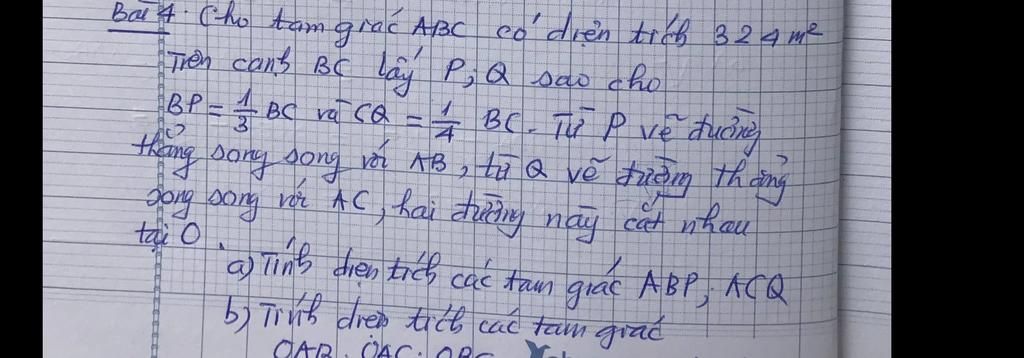 Bài 4. Cho tam giác ABC có diện tích 324 m²
Trên cạnh BC lấy P; Q sao cho
BP = 1/3 BC và CQ = 1/4 BC. Từ P vẽ đường
thẳng song song với AB, từ Q vẽ đường thẳng
song song với AC, hai đường này cắt nhau
tại O.
a) Tính diện tích các tam giác ABP; ACQ
b) Tính diện tích các tam giác
OAB; OAC; OBC